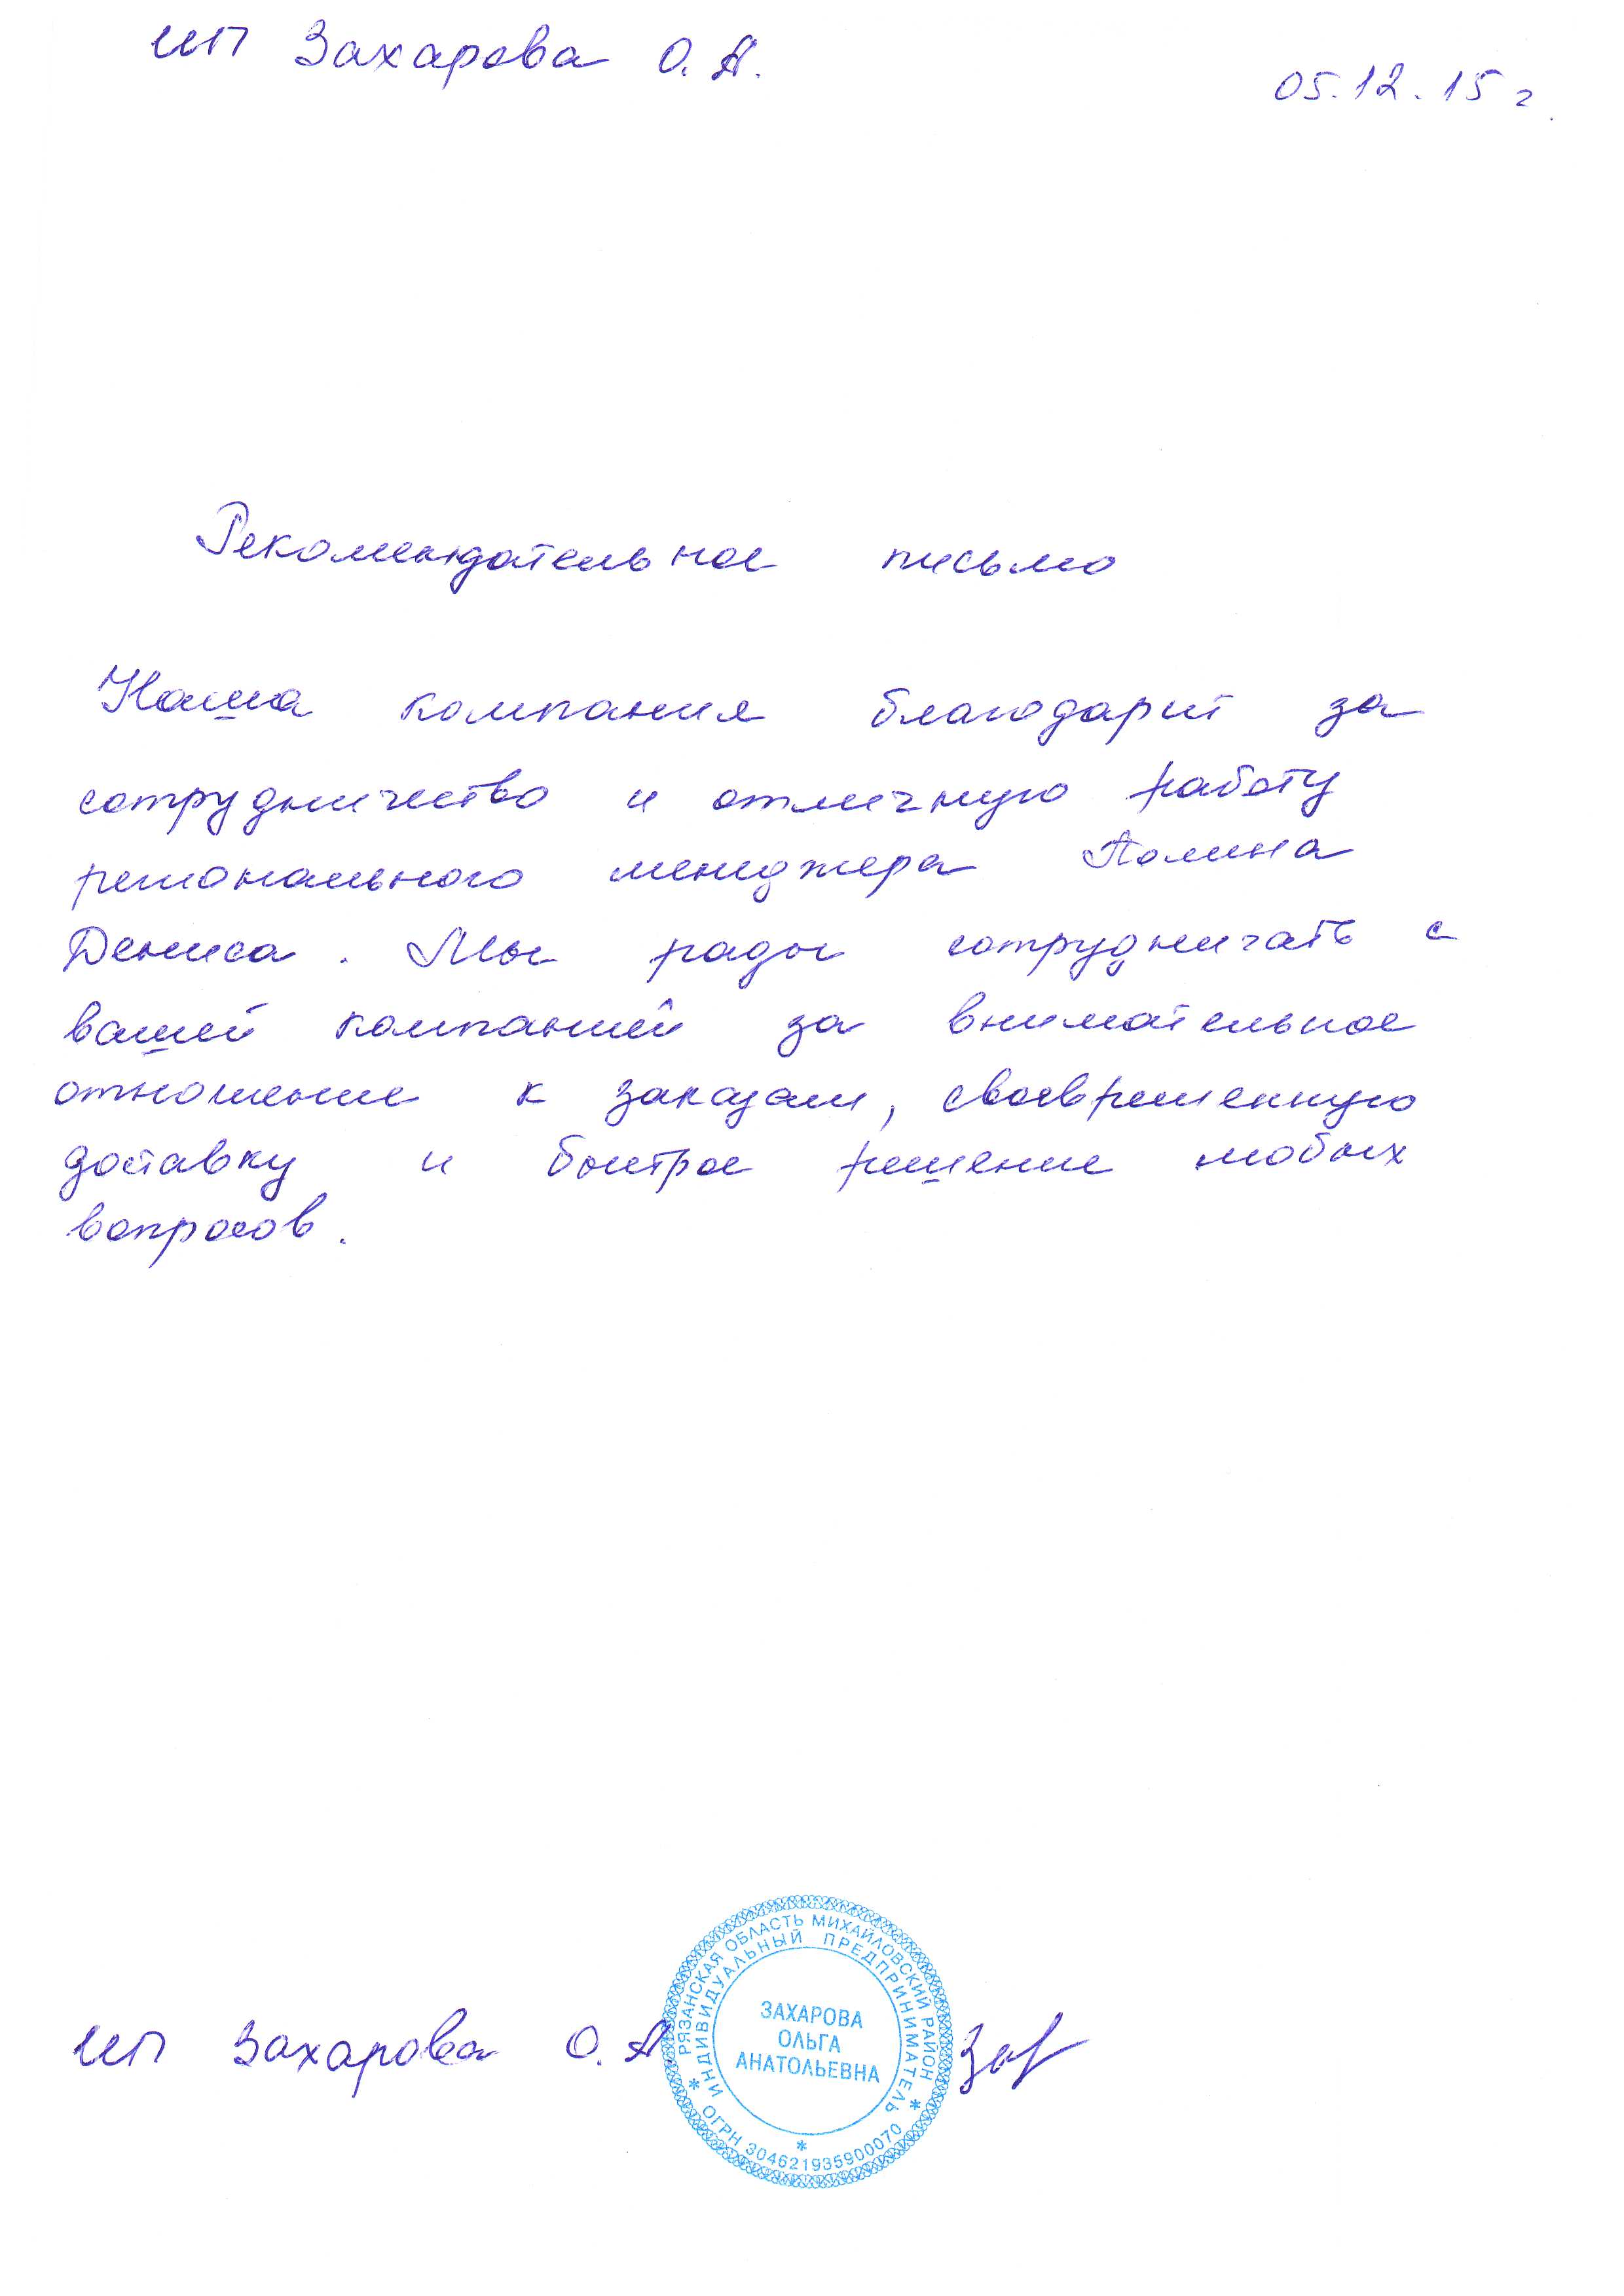 ИП Захарова О.А.
05.12.15 г.
Рекомендательное письмо
Наша компания благодарит за
сотрудничество и отличную работу
регионального менеджера Полина
Дениса. Мы рады сотрудничать с
вашей компанией за внимательное
отношение к заказам, своевременную
доставку и быстрое решение любых
вопросов.
ИП Захарова О.А.
РЯЗАНСКАЯ ОБЛАСТЬ МИХАЙЛОВСКИЙ РАЙОН
ИНДИВИДУАЛЬНЫЙ ПРЕДПРИНИМАТЕЛЬ
ЗАХАРОВА
ОЛЬГА
АНАТОЛЬЕВНА
ОГРН 304621935900070